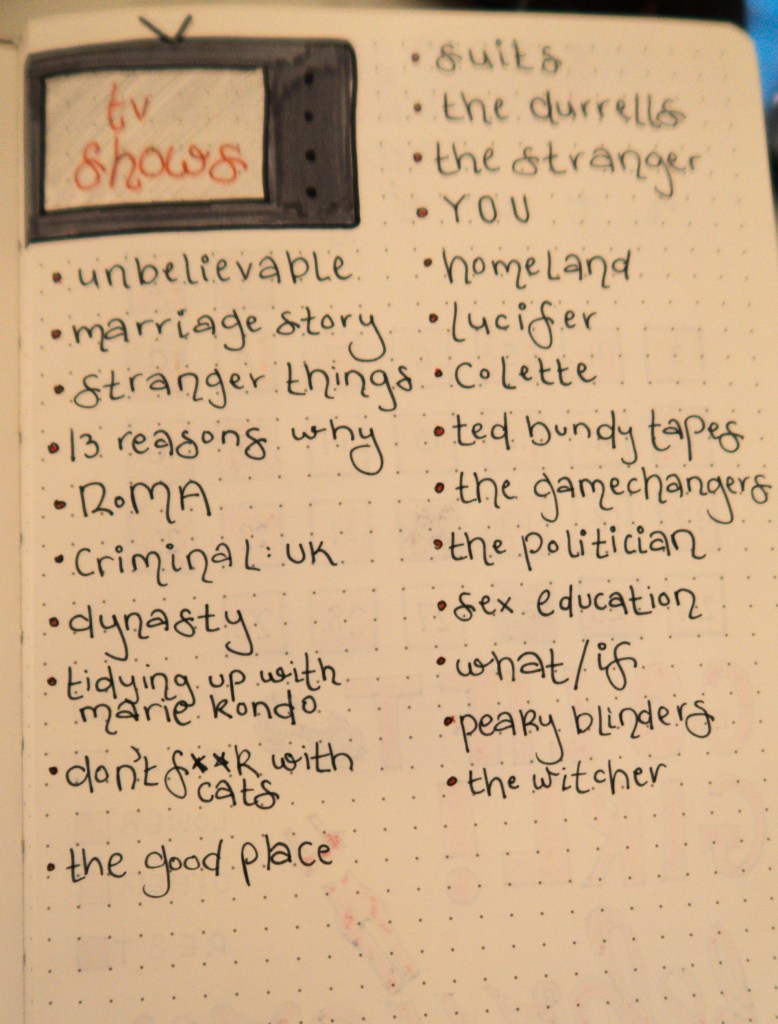 tv
shows
• unbelievable
• marriage story
• stranger things
• 13 reasons why
• ROMA
• criminal: UK
• dynasty
• tidying up with
marie kondo
• don't f**k with
cats
• the good place
• suits
• the durrells
• the stranger
• YOU
• homeland
• lucifer
• colette
• ted bundy tapes
• the gamechangers
• the politician
• sex education
• what/if
• peaky blinders
• the witcher